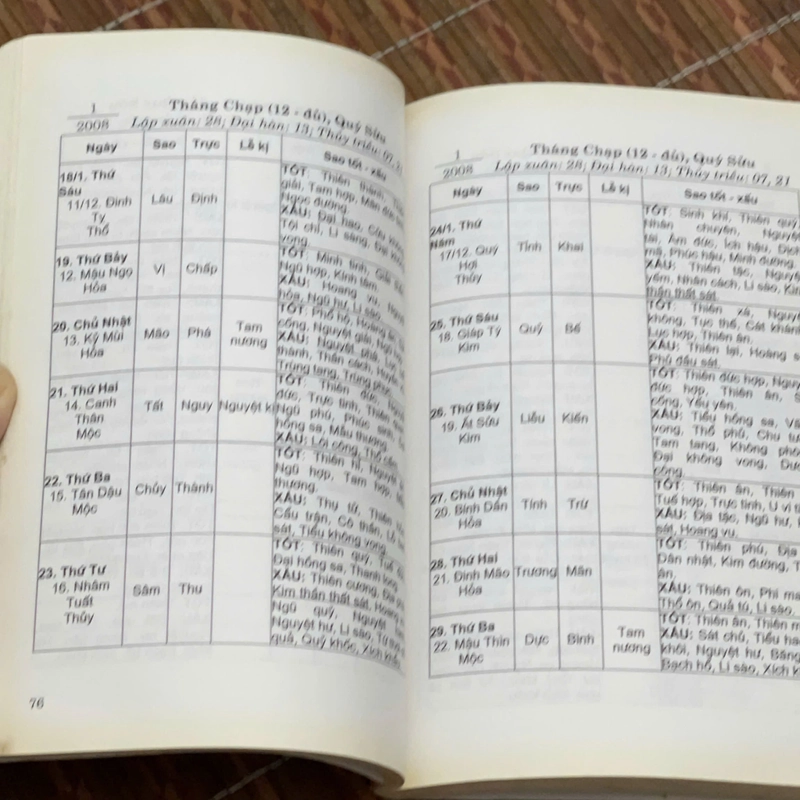 1
2008
Tháng Chạp (12 - đủ), Quý Sửu
Lập xuân: 28; Đại hàn: 13; Thủy triều: 07, 21
Ngày Sao Trực Lỗ kị Sao tốt - xấu
18/1. Thứ
Sáu
11/12. Đinh
Tỵ
Thổ
Lâu
Định
TỐT: Thiên thành,
giải, Tam hợp, Mẫn đức
Ngọc đường.
XẤU: Đại hao,
Tội chỉ, Li sàng, Đại
vong.
19. Thứ Bảy
12. Mậu Ngọ
Hỏa
Vị
Chấp
TỐT: Minh tinh, Giải
Ngũ hợp, Kính tâm.
XẤU: Hoang vu,
hỏa, Ngũ hư, Li sào.
20. Chủ Nhật
13. Kỷ Mùi
Hỏa
Mão
Phá
Tam
nương
TỐT: Phổ hộ, Hoàng ân,
cống, Nguyệt giải, Ngũ
XẤU: Nguyệt phá,
thành, Thần cách, Huyền
Trùng tang, Trùng phục.
21. Thứ Hai
14. Canh
Thân
Mộc
Tất
Nguy
Nguyệt kị
TỐT: Thiên đức,
đức, Trực tinh, Thiên
Ngũ phú, Phúc sinh,
hồng sa, Mẫu thương.
XẤU: Lôi công, Thổ cấm.
22. Thứ Ba
15. Tân Dậu
Mộc
Chủy
Thành
TỐT: Thiên hỉ, Nguyệt
Ngũ hợp, Tam hợp,
thương.
XẤU: Thụ tử, Thiên
Cẩu trận, Cô thần, Lỗ
sát, Tiểu không vong.
23. Thứ Tư
16. Nhâm
Tuất
Thủy
Sâm
Thu
TỐT: Thiên quý, Tuế
Đại hồng sa, Thanh long.
XẤU: Thiên cương, Địa
Kim thần thất sát, Hoang
Ngũ quỷ, Nguyệt
Nguyệt hư, Li sào, Tứ
quả, Quỷ khốc, Xích khẩu.
76
1
2008
Tháng Chạp (12 - đủ), Quý Sửu
Lập xuân: 28; Đại hàn: 13; Thủy triều: 07, 21
Ngày Sao Trực Lỗ kị Sao tốt - xấu
24/1. Thứ
Năm
17/12. Quý
Hợi
Thủy
Tỉnh
Khai
TỐT: Sinh khí, Thiên quý,
Nhân chuyên, Nguyệt
tài, Âm đức, Ích hậu, Dịch
mã, Phúc hậu, Minh đường.
XẤU: Thiên tặc, Nguyệt
yếm, Nhân cách, Li sào, Kim
thần thất sát.
25. Thứ Sáu
18. Giáp Tý
Kim
Quỷ
Bế
TỐT: Thiên xá, Nguyệt
không, Tục thế, Cát khánh,
Lục hợp, Thiên ân.
XẤU: Thiên lại, Hoàng sa,
Phủ đầu sát.
26. Thứ Bảy
19. Ất Sửu
Kim
Liễu
Kiến
TỐT: Thiên đức hợp, Nguyệt
đức hợp, Thiên ân,
cống, Yếu yên.
XẤU: Tiểu hồng sa,
vong, Thổ phủ, Chu tước,
Tam tang, Không phòng,
Đại không vong, Dương
công.
27. Chủ Nhật
20. Bính Dần
Hỏa
Tinh
Trừ
TỐT: Thiên ân, Thiên
Tuế hợp, Trực tinh, U vi tinh.
XẤU: Địa tặc, Ngũ hư,
sát, Hoang vu.
28. Thứ Hai
21. Đinh Mão
Hỏa
Trương
Mãn
TỐT: Thiên phú, Địa
Dân nhật, Kim đường,
ân.
XẤU: Thiên ôn, Phi ma
Thổ ôn, Quả tú, Li sào.
29. Thứ Ba
22. Mậu Thìn
Mộc
Dực
Bình
Tam
nương
TỐT: Thiên ân, Thiên
XẤU: Sát chủ, Tiểu hao,
khôi, Nguyệt hư, Băng
Bạch hổ, Li sào, Xích khẩu.